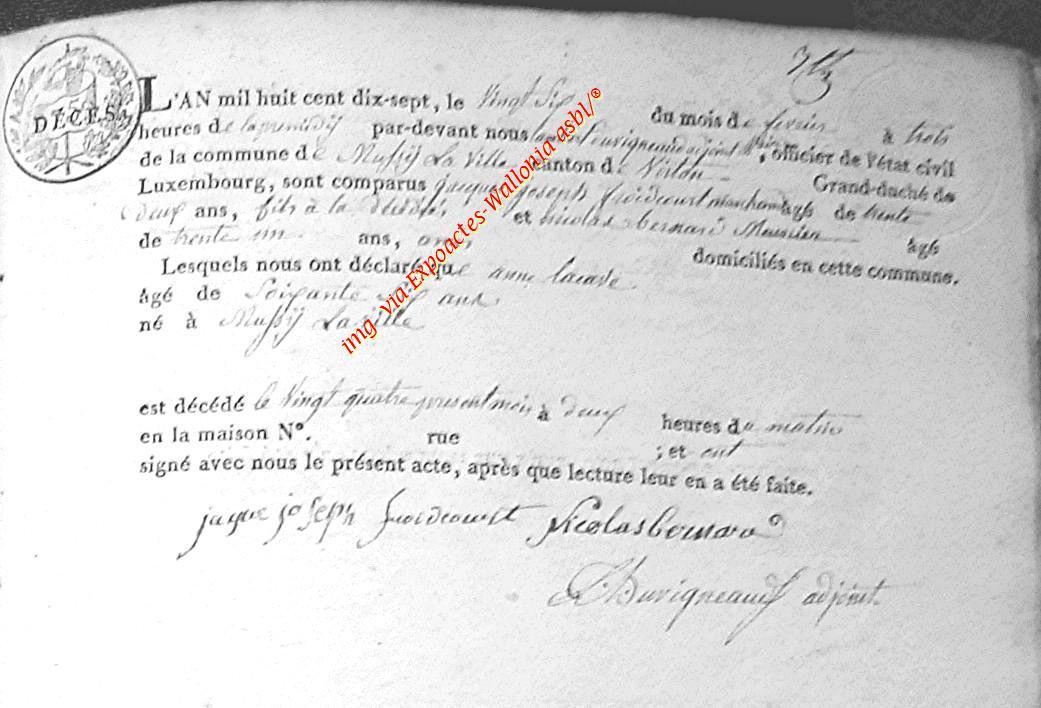 DÉCÈS
L'AN mil huit cent dix-sept, le Vingt Six du mois de fevrier à trois
heures de lapremidij par-devant nous Duvigneaud adjoint, officier de l'état civil
de la commune de Mussij La Ville canton de Virton Grand-duché de
Luxembourg, sont comparus jacques joseph froidcourt âgé de trente
deux ans, fils à la et nicolas bernard Meunier âgé
de trente un ans, domiciliés en cette commune.
Lesquels nous ont déclaré que anne
âgé de Soixante ans
né à Mussij La Ville
est décédé le Vingt quatre present mois à deux heures du matin
en la maison N°. rue ; et ont
signé avec nous le présent acte, après que lecture leur en a été faite.
jaque joseph froidcourt Nicolas bernard
Duvigneaud adjoint
img via Expoactes-Wallonia asbl/®